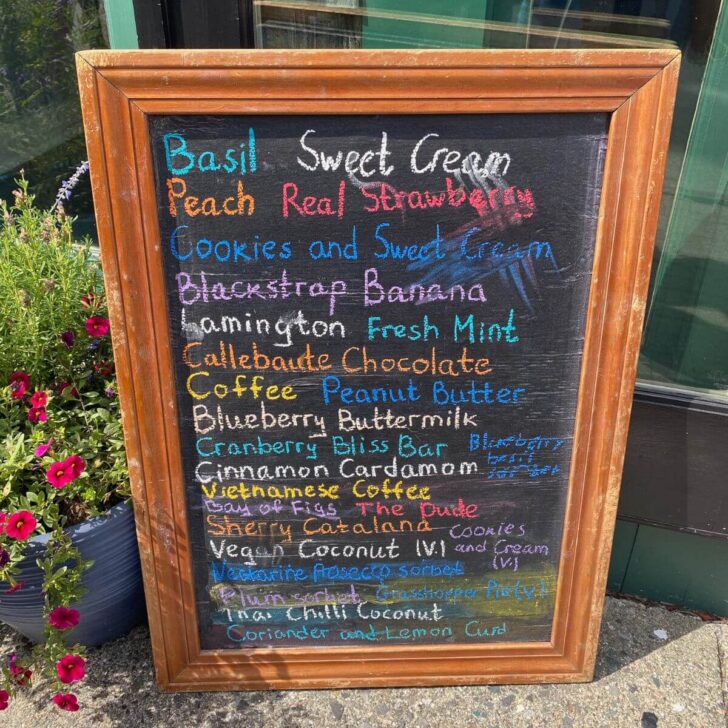 Basil Sweet Cream
Peach Real Strawberry
Cookies and Sweet Cream
Blackstrap Banana
Lamington Fresh Mint
Callebaute Chocolate
Coffee Peanut Butter
Blueberry Buttermilk
Cranberry Bliss Bar
Blueberry
basil
sorbet
Cinnamon Cardamom
Vietnamese Coffee
Bay of Figs The Dude
Sherry Catalana
Vegan Coconut (V.)
Cookies
and Cream
(V.)
Nectarine Prosecco sorbet
Plum sorbet Grasshopper Pie (V.)
Thai Chilli Coconut
Coriander and Lemon Curd